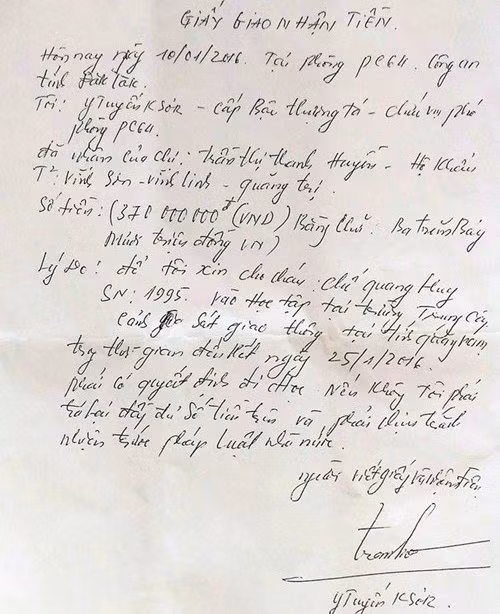 GIẤY GIAO NHẬN TIỀN.
Hôm nay ngày 10/01/2016. Tại phòng PC64. Công an
tỉnh Đăk Lăk.
Tôi: Y Tuyến KSơR - cấp Bậc thượng tá - chức vụ phó
phòng PC64.
đã nhận của chị: Trần Thị Thanh Huyền - Hộ Khẩu
T²: Vĩnh Sơn - Vĩnh Linh - Quảng Trị.
Số tiền: (370 000 000đ (VND) Bằng chữ: Ba trăm Bảy
Mươi triệu đồng VN)
Lý do: để tôi xin cho cháu: Chế Quang Huy
SN: 1995. vào học tập tại trường Trung Cấp
Cảnh Sát giao thông tại tỉnh Quảng Nam
thời gian đến hết ngày 25/1/2016.
phải có quyết định đi học. Nếu Không tôi phải
trả lại đầy đủ số tiền trên và phải chịu trách
nhiệm trước pháp luật nhà nước.
người viết giấy và nhận tiền
Y Tuyến KSơR.